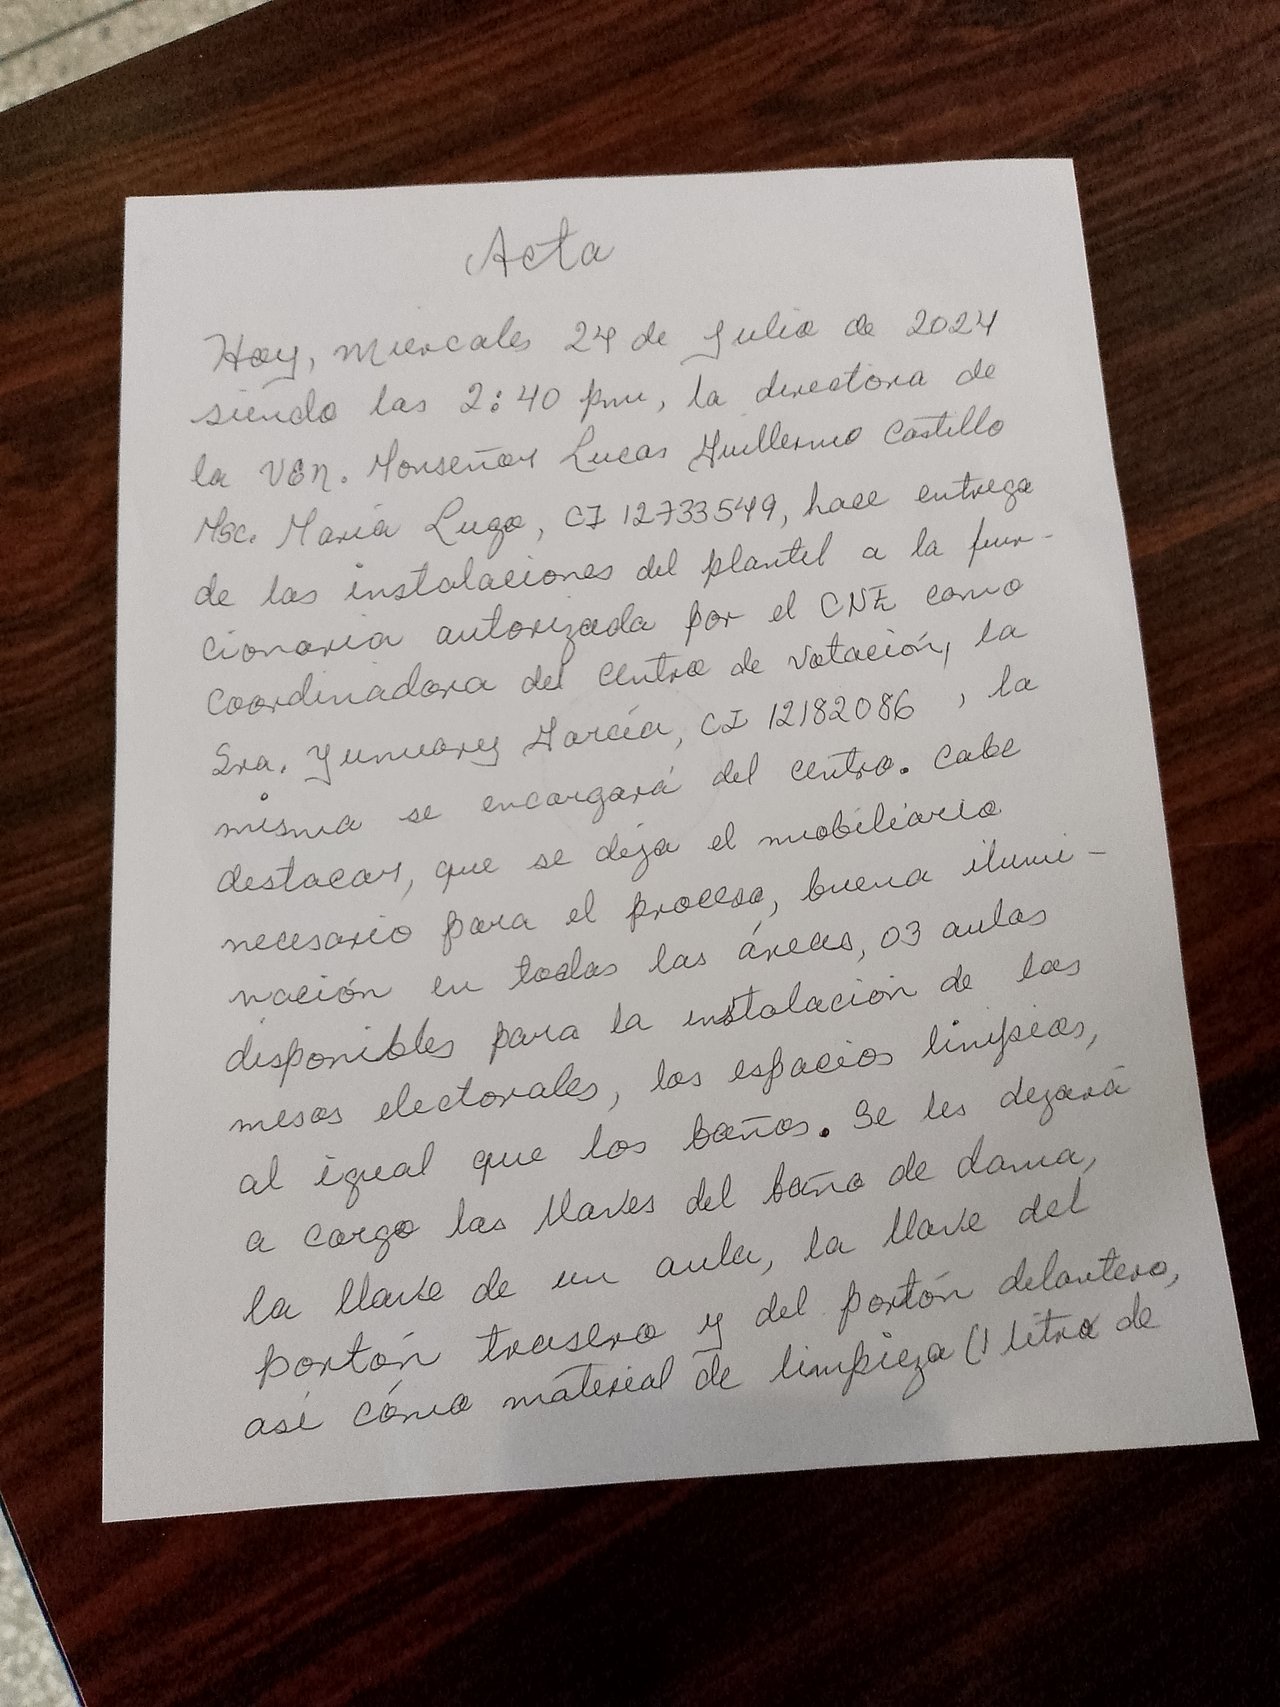 Acta
Hoy, miercoles 24 de Julio de 2024
siendo las 2:40 pm, la directora de
la UEN. Monseñor Lucas Guillermo Castillo
Msc. María Lugo, CI 12733549, hace entrega
de las instalaciones del plantel a la fun-
cionaria autorizada por el CNE como
coordinadora del centro de votación, la
Sra. Yumary García, CI 12182086, la
misma se encargará del centro. Cabe
destacar, que se deja el mobiliario
necesario para el proceso, buena ilumi-
nación en todas las áreas, 03 aulas
disponibles para la instalación de las
mesas electorales, los espacios limpios,
al igual que los baños. Se les dejará
a cargo las llaves del baño de dama,
la llave de un aula, la llave del
portón trasero y del portón delantero,
así cómo material de limpieza (1 litro de